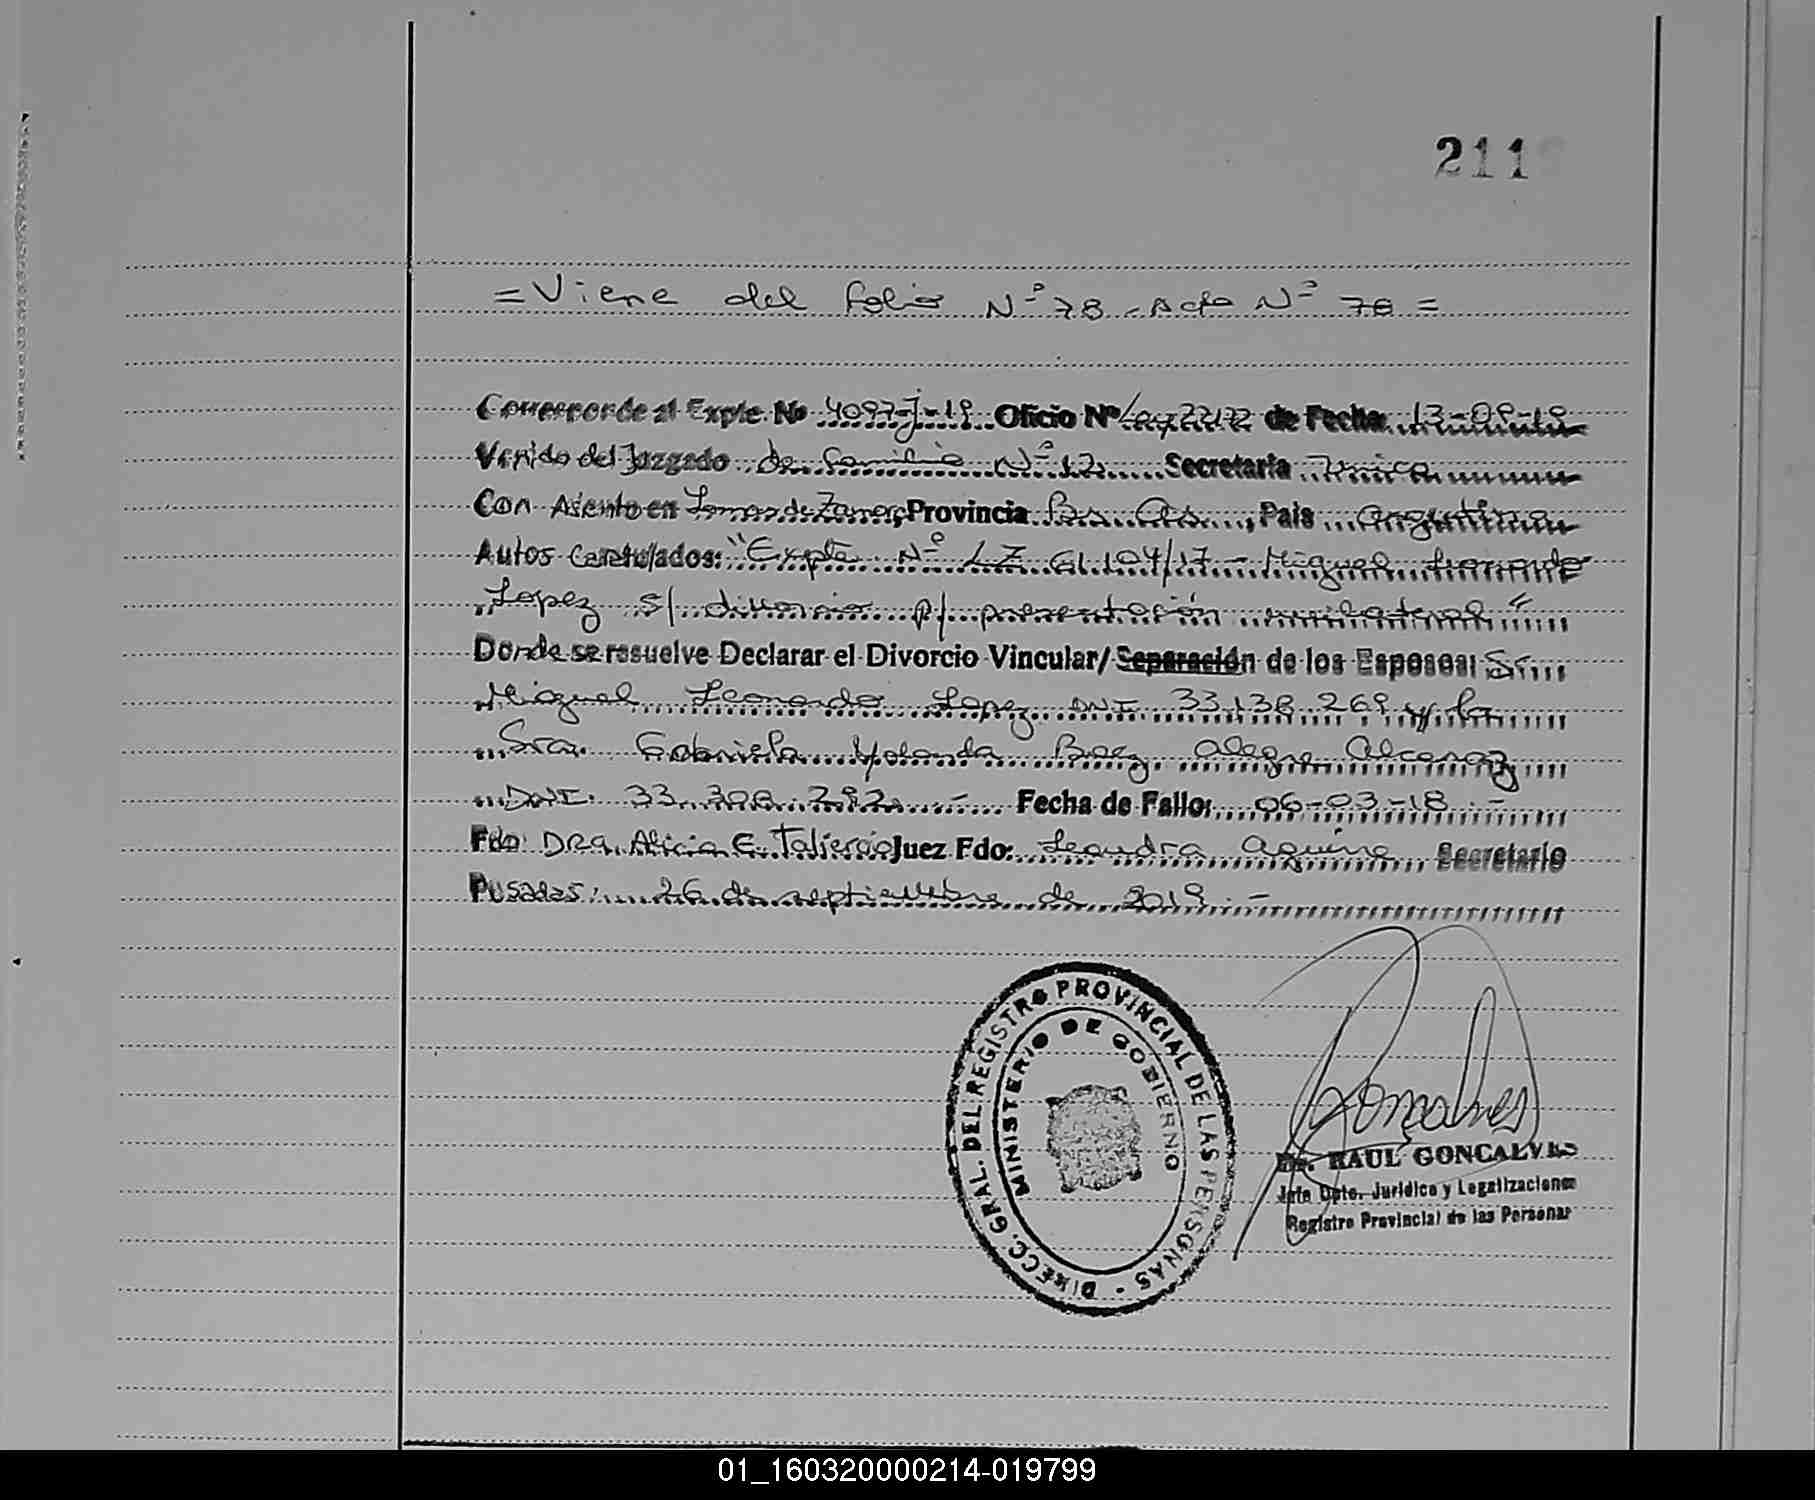 211
= Viene del folio Nº 78 - Acta Nº 78 =
Corresponde al Expte. Nº 4097-J-19 Oficio Nº Ley 22172 de Fecha 13-09-19
Venido del Juzgado de Familia Nº 12 Secretaria Unica
Con Asiento en Lomas de Zamora, Provincia Bs As, Pais Argentina
Autos Caratulados: "Expte Nº LZ 61104/17 - Miguel Leonardo
Lopez s/ divorcio p/ presentación unilateral"
Donde se resuelve Declarar el Divorcio Vincular/Separación de los Esposos: Sr.
Miguel Leonardo Lopez DNI 33.138.269 y la
Sra. Gabriela Yolanda Baez Alegre Alcaraz
DNI. 33.398.292.- Fecha de Fallo: 06-03-18.-
Fdo: Dra. Alicia E. Taliercio Juez Fdo: Leandra Aguirre Secretario
Posadas: 26 de septiembre de 2019.-
DIRECC. GRAL. DEL REGISTRO PROVINCIAL DE LAS PERSONAS -
MINISTERIO DE GOBIERNO
Goncalves
Dr. RAUL GONCALVES
Jefe Dpto. Jurídico y Legalizaciones
Registro Provincial de las Personas
01_160320000214-019799